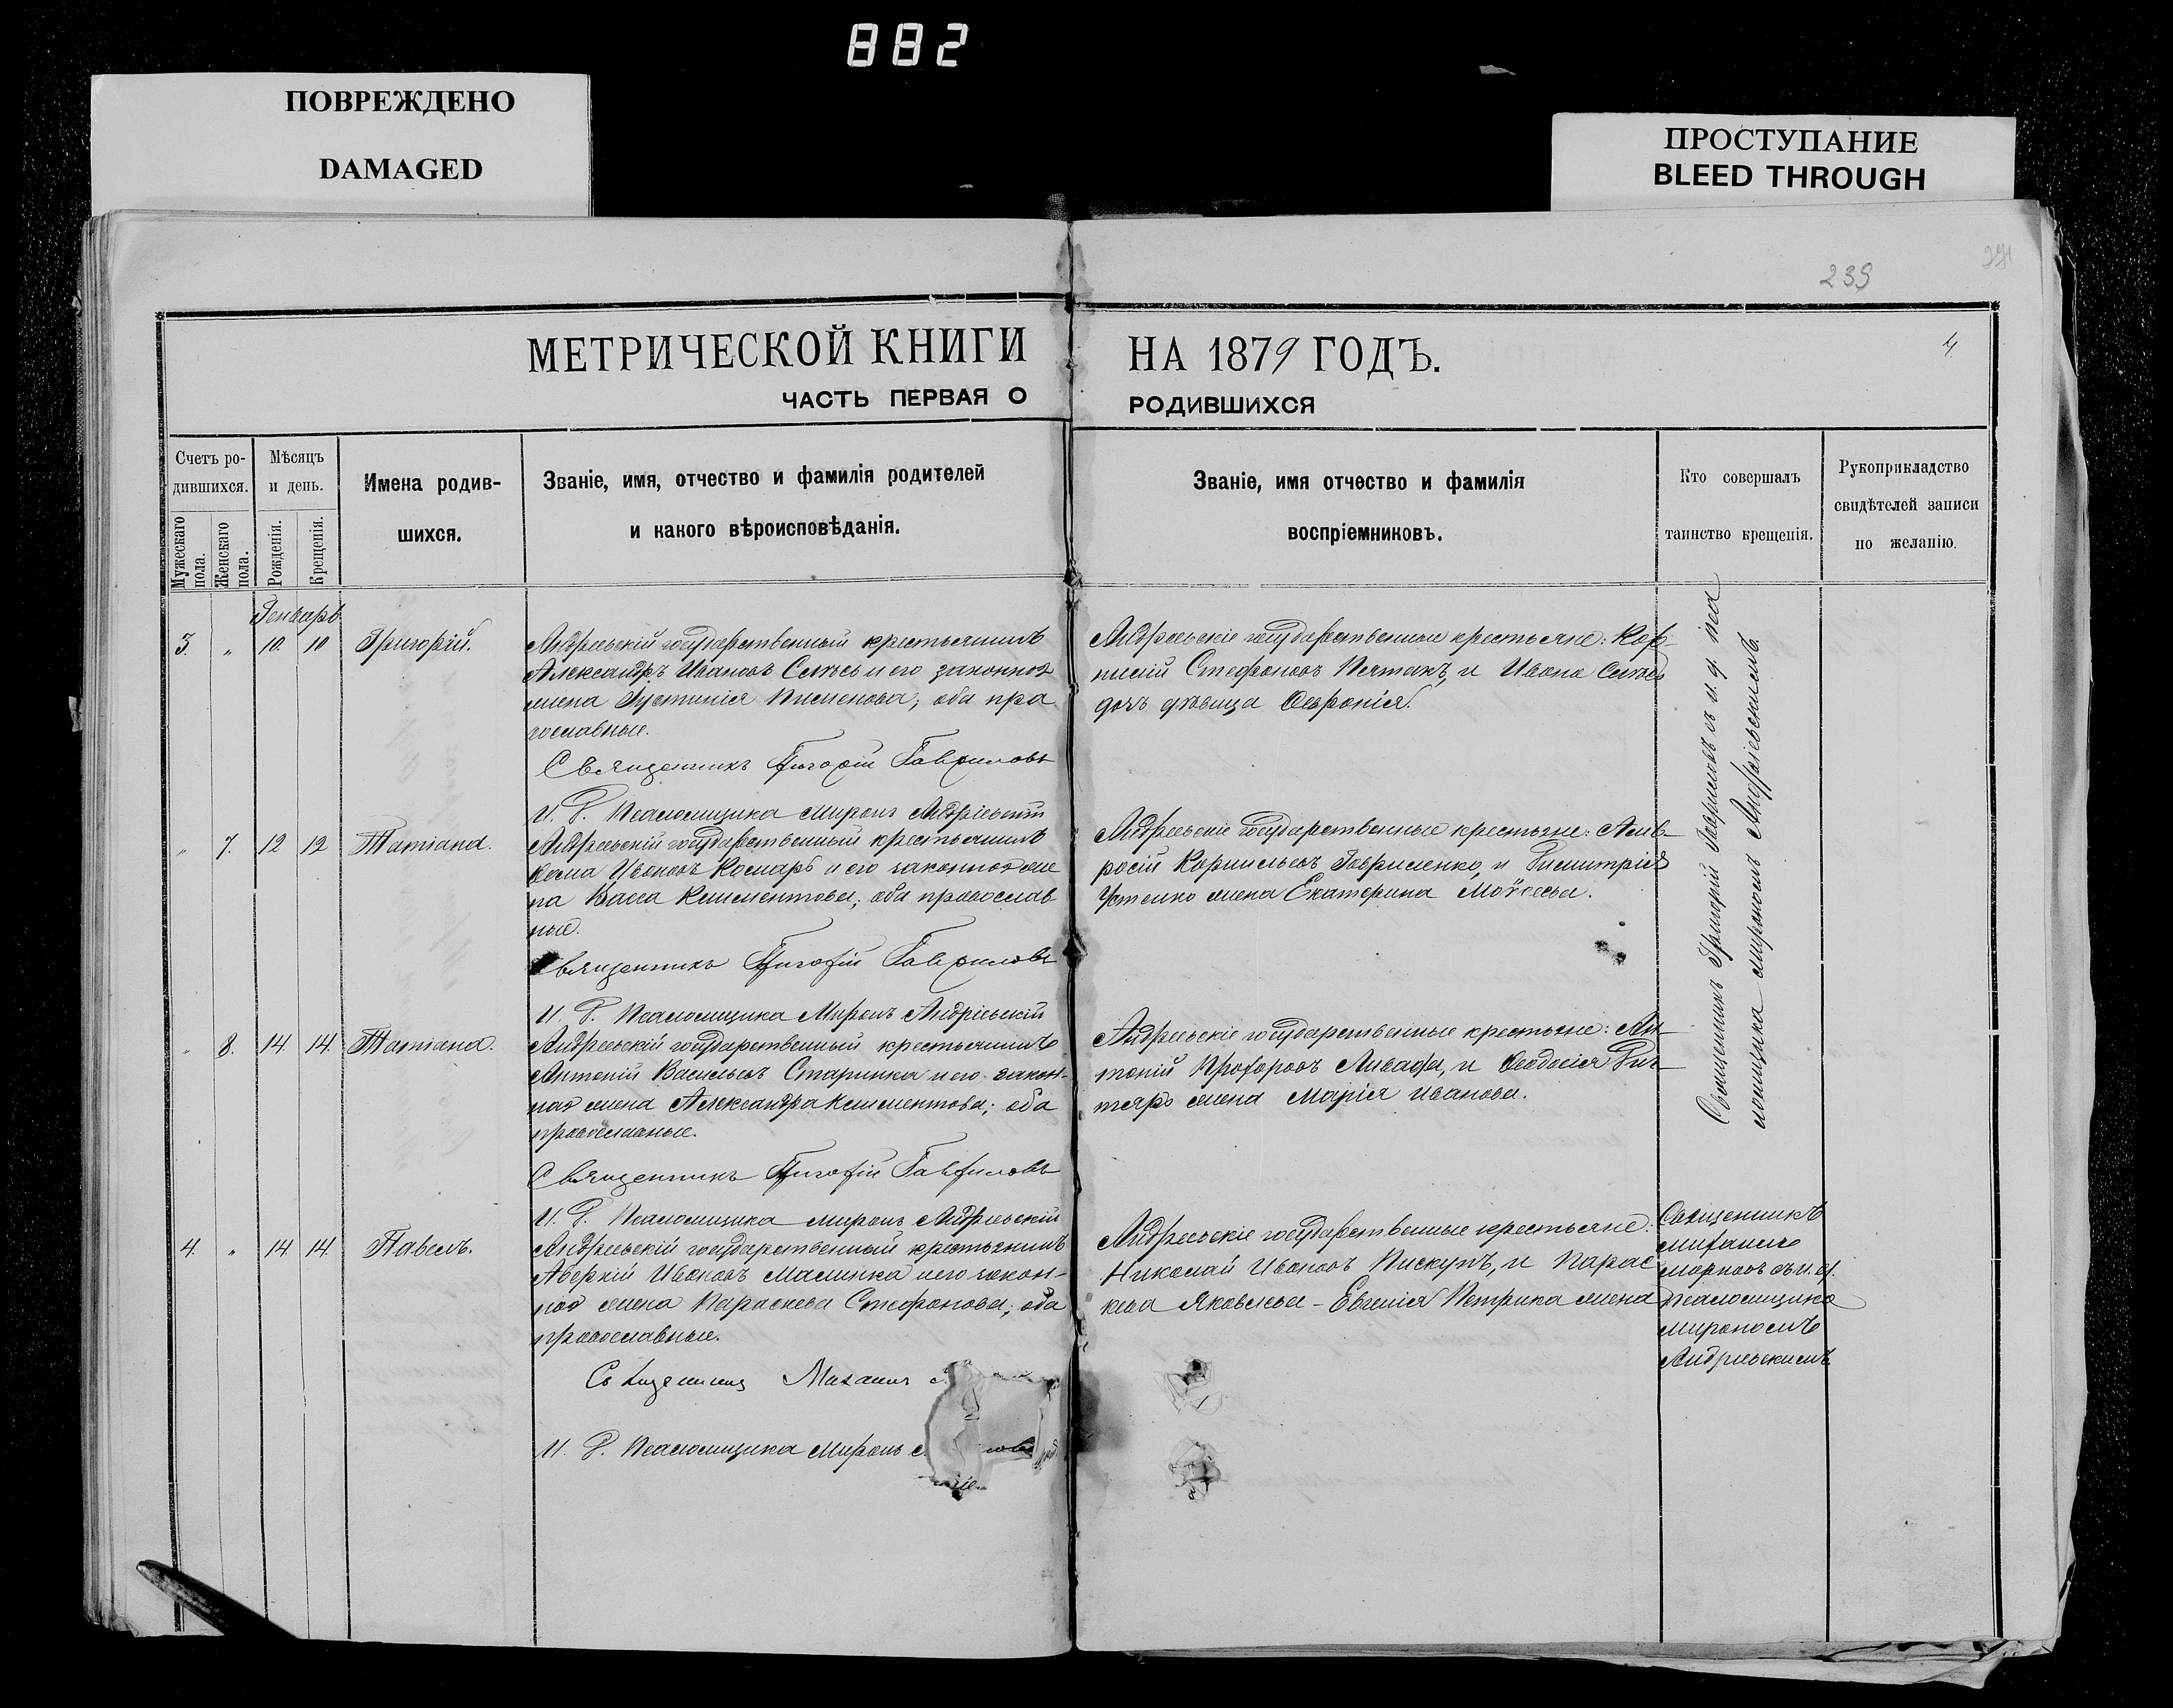 882
ПОВРЕЖДЕНО
DAMAGED
ПРОСТУПАНИЕ
BLEED THROUGH
239
МЕТРИЧЕСКОЙ КНИГИ НА 1879 ГОДЪ.
4
ЧАСТЬ ПЕРВАЯ О РОДИВШИХСЯ
Счетъ ро-
дившихся.
Мужескаго пола.
Женскаго пола.
Мѣсяцъ
и день.
Рожденія.
Крещенія.
Имена родив-
шихся.
Званіе, имя, отчество и фамилія родителей
и какого вѣроисповѣданія.
Званіе, имя отчество и фамилія
воспріемниковъ.
Кто совершалъ
таинство крещенія.
Рукоприкладство
свидѣтелей записи
по желанію.
Генварь
3. " 10. 10 Григорій.
Андреевскій государственный крестьянинъ
Александръ Ивановъ и его законная
жена Іустинія; оба пра
вославные.
Священникъ Григорій Гавриловъ
И. Д. Псаломщика Миронъ Андріевскій
Андреевскіе государственные крестьяне: Кор-
нилій Стефановъ Пятакъ, и Ивана
дочь дѣвица Февронія.
" 7. 12 12 Татіана.
Андреевскій государственный крестьянинъ
Косма Ивановъ Комаръ и его законная же
на Васса Климентова; оба православ
ные.
Священникъ Григорій Гавриловъ
И. Д. Псаломщика Миронъ Андріевскій
Андреевскіе государственные крестьяне: Амв-
росій Корнильевъ Гавриленко, и Димитрія
жена Екатерина Моѵсеева.
" 8. 14 14. Татіана.
Андреевскій государственный крестьянинъ
Антоній Васильевъ Старинка и его закон-
ная жена Александра Климентова; оба
православные.
Священникъ Григорій Гавриловъ
И. Д. Псаломщика Миронъ Андріевскій
Андреевскіе государственные крестьяне: Ан-
тоній Прохоровъ, и Феодосія
жена Марія Иванова.
Священникъ Григорій Гавриловъ съ и. д. пса
ломщика Мирономъ Андріевскимъ.
4. " 14 14 Павелъ.
Андреевскій государственный крестьянинъ
Аверкій Ивановъ Малинка и его закон-
ная жена Параскева Стефанова; оба
православные.
Священникъ Михаилъ
И. Д. Псаломщика Миронъ
Андреевскіе государственные крестьяне:
Николай Ивановъ Пискунъ, и Парас
кева Яковлева - Евгенія Петрика жена
Священникъ
Михаилъ
Марковъ съ и. д.
псаломщика
Мирономъ
Андріевскимъ